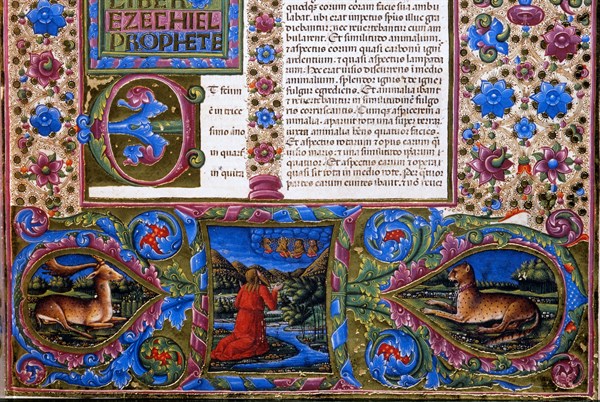 LIBER
EZECHIEL
PROPHETE
T factum
ē in trice
simo āno
in quart
in quita
quedq; eorum coram facie sua ambu
labat. ubi erat impetus spūs illuc gra
diebantur: nec reuertebantur cum am
bularent. Et similitudo animalium.
aspectus eorum quasi carbonū igni
ardentium. et quasi aspectus lampada
rum. Hec erat uisio discurrens i medio
animalium. splendor ignis et de igne
fulgur egrediens. Et animalia ibant
et reuertebantur in similitudinē fulgo
ris coruscantis. Cumq; aspicerem
animalia. apparuit rota una super terram
iuxta animalia hens quatuor facies.
Et aspectus rotarum et opus earum q̄si
uisio maris: et una similitudo ipsarum
quatuor. Et aspectus earum et opera
quasi sit rota in medio rote. Per quatuor
partes earum euntes ibant: et nō reuer